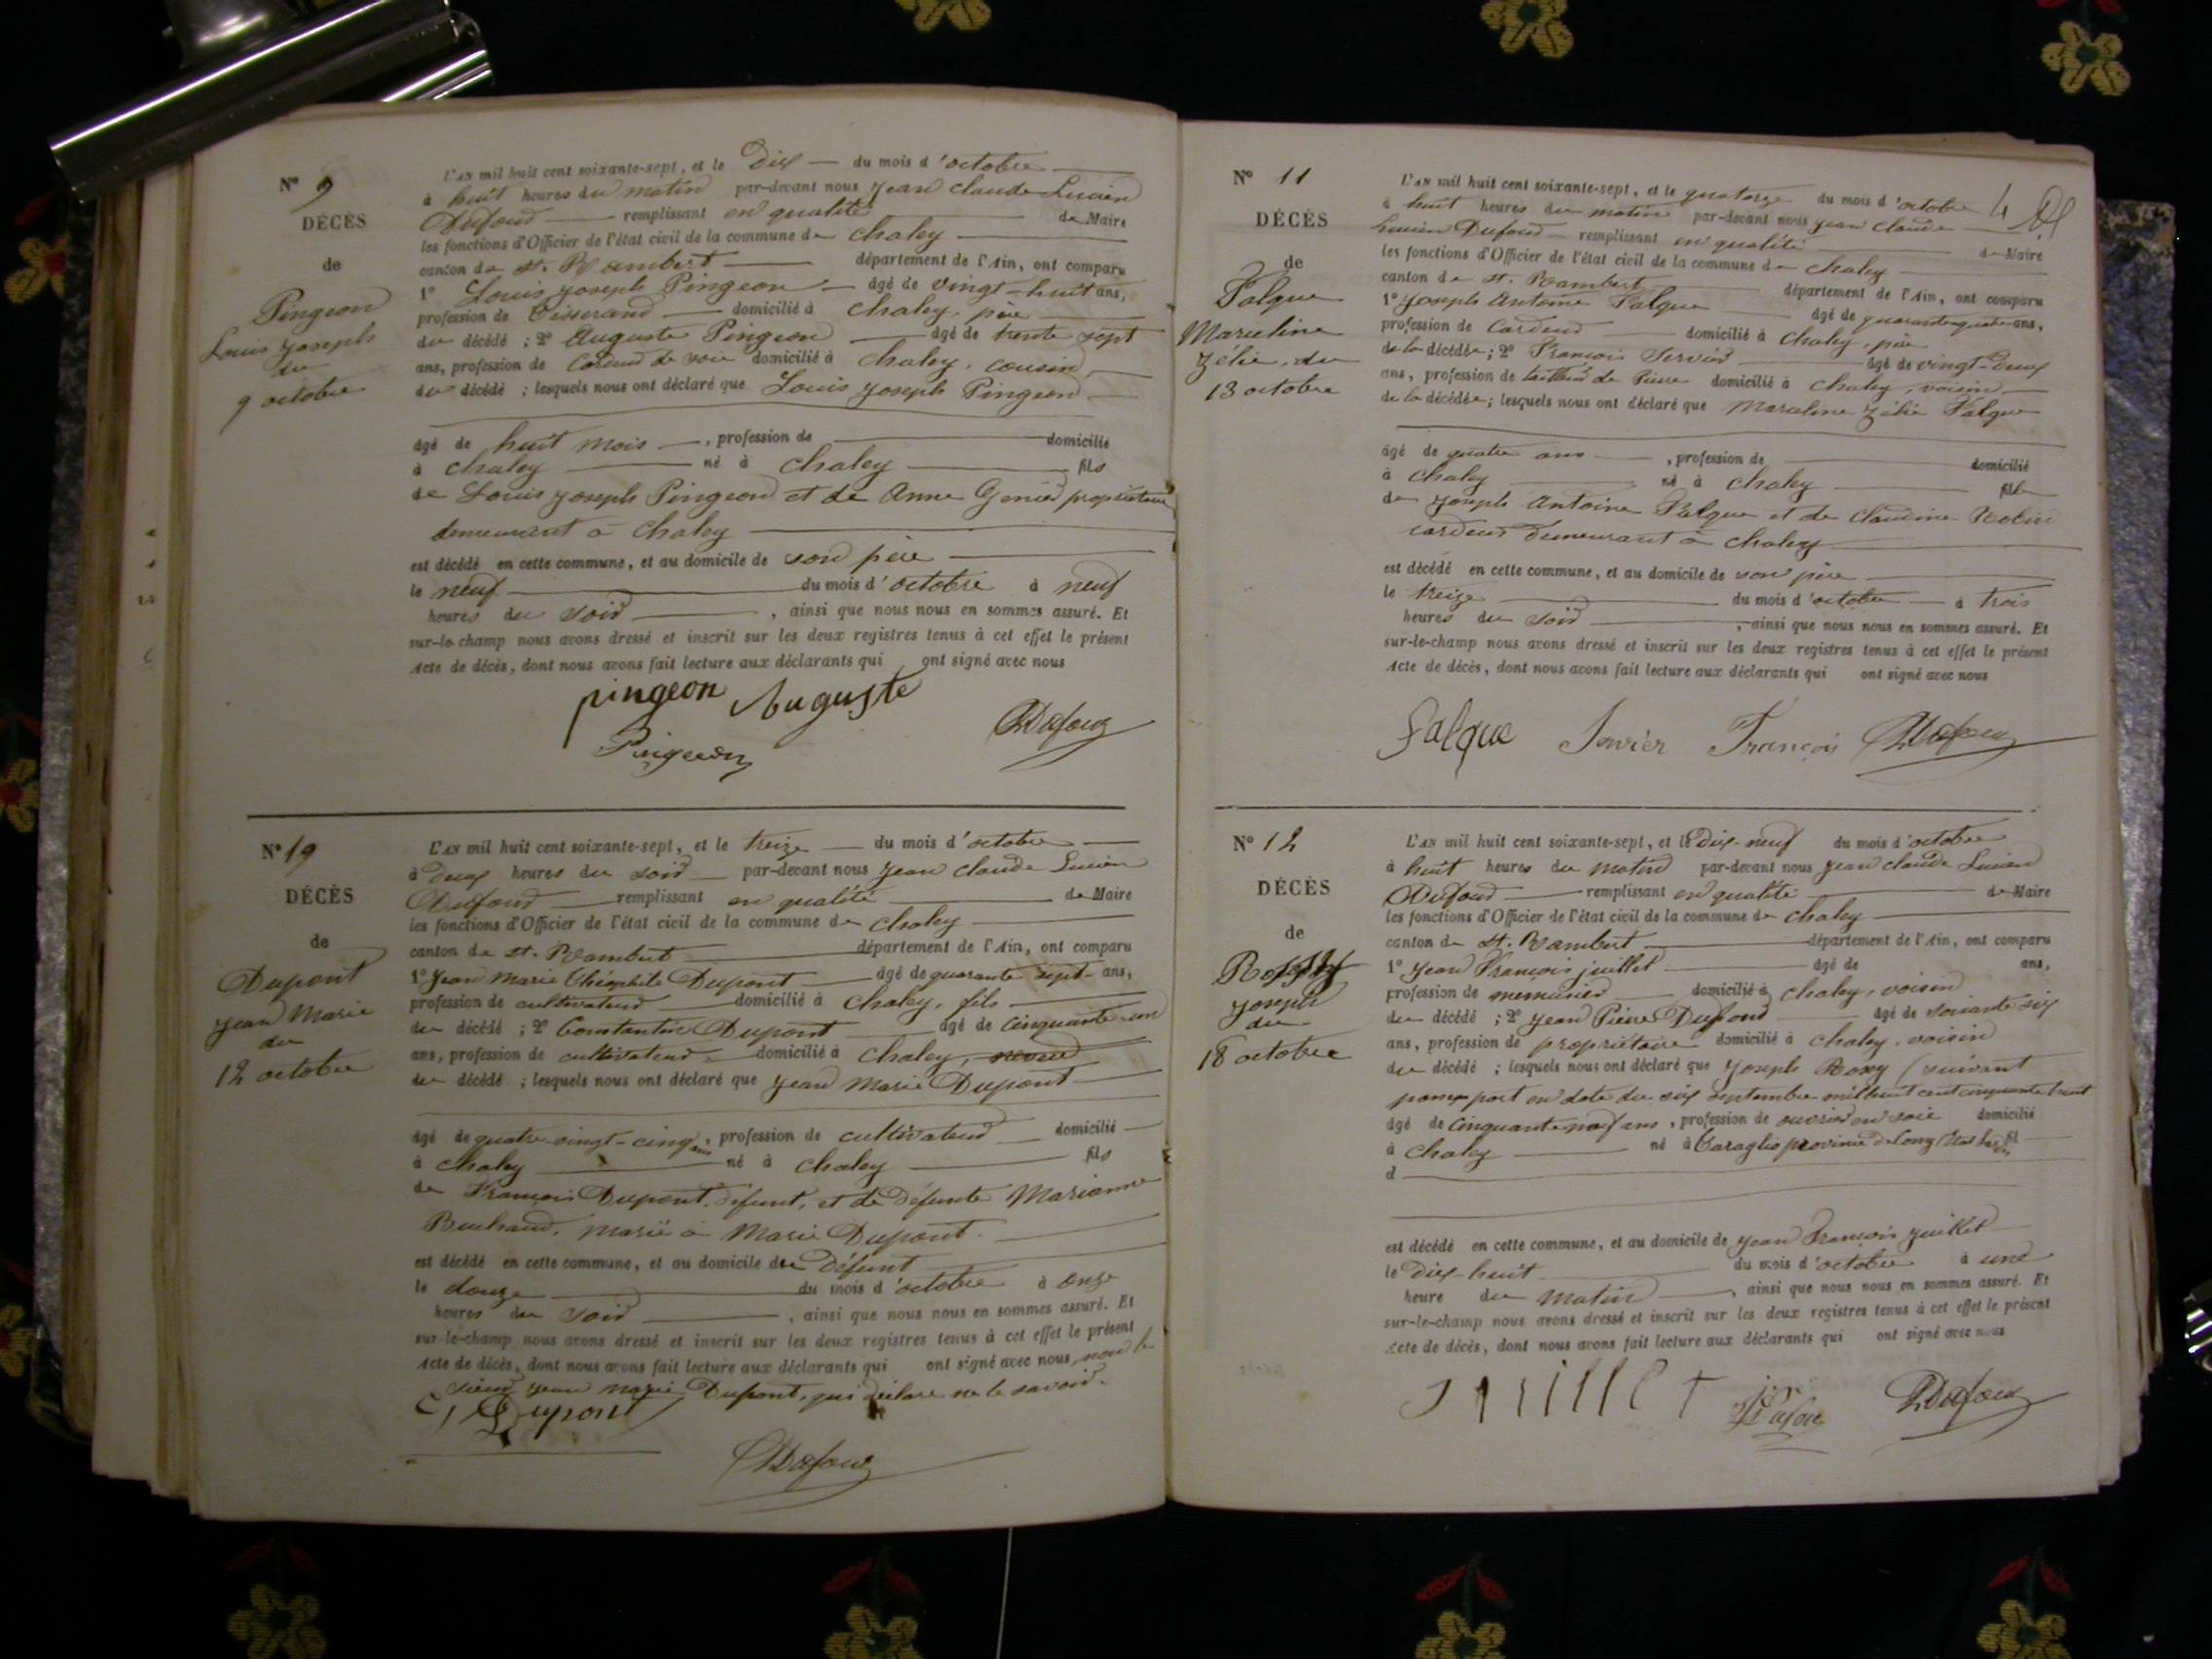 Nº 9
DÉCÈS
de
Pingeon
Louis Joseph
du
9 octobre
L'AN mil huit cent soixante-sept, et le Dix du mois d'octobre
à huit heures du matin par-devant nous Jean Claude Lucien
Dufour remplissant en qualité de Maire
les fonctions d'Officier de l'état civil de la commune de Chaley
canton de St. Rambert département de l'Ain, ont comparu
1º Louis Joseph Pingeon âgé de vingt-huit ans,
profession de Tisserand domicilié à Chaley, père
du décédé ; 2º Auguste Pingeon âgé de trente sept
ans, profession de Cardeur de soie domicilié à Chaley, cousin
du décédé ; lesquels nous ont déclaré que Louis Joseph Pingeon
âgé de huit mois, profession de domicilié
à Chaley né à Chaley fils
de Louis Joseph Pingeon et de Anne propriétaires
demeurant à Chaley
est décédé en cette commune, et au domicile de son père
le neuf du mois d'octobre à neuf
heures du soir, ainsi que nous nous en sommes assuré. Et
sur-le-champ nous avons dressé et inscrit sur les deux registres tenus à cet effet le présent
Acte de décès, dont nous avons fait lecture aux déclarants qui ont signé avec nous
pingeon Auguste
Pingeon
LDufour
Nº 19
DÉCÈS
de
Dupont
Jean Marie
du
12 octobre
L'AN mil huit cent soixante-sept, et le treize du mois d'octobre
à Deux heures du soir par-devant nous Jean Claude Lucien
Dufour remplissant en qualité de Maire
les fonctions d'Officier de l'état civil de la commune de Chaley
canton de St. Rambert département de l'Ain, ont comparu
1º Jean Marie Théophile Dupont âgé de quarante sept ans,
profession de cultivateur domicilié à Chaley, fils
du décédé ; 2º Constantin Dupont âgé de cinquante un
ans, profession de cultivateur domicilié à Chaley, neveu
du décédé ; lesquels nous ont déclaré que Jean Marie Dupont
âgé de quatre-vingt-cinq ans, profession de cultivateur domicilié
à Chaley né à Chaley fils
de François Dupont, défunt, et de Défunte Marianne
marié à Marie Dupont.
est décédé en cette commune, et au domicile du Défunt
le douze du mois d'octobre à onze
heures du soir, ainsi que nous nous en sommes assuré. Et
sur-le-champ nous avons dressé et inscrit sur les deux registres tenus à cet effet le présent
Acte de décès, dont nous avons fait lecture aux déclarants qui ont signé avec nous, non le
sieur Jean Marie Dupont, qui déclare ne le savoir.
Dupont
LDufour
Nº 11
DÉCÈS
de
Falque
Marceline
Zélie, du
13 octobre
L'AN mil huit cent soixante-sept, et le quatorze du mois d'octobre
à huit heures du matin par-devant nous Jean Claude
Lucien Dufour remplissant en qualité de Maire
les fonctions d'Officier de l'état civil de la commune de Chaley
canton de St. Rambert département de l'Ain, ont comparu
1º Joseph Antoine Falque âgé de quarante-quatre ans,
profession de Cardeur domicilié à Chaley, père
de la décédée ; 2º François Servier âgé de vingt-Deux
ans, profession de tailleur de Pierre domicilié à Chaley, voisin
de la décédée ; lesquels nous ont déclaré que Marceline Zélie Falque
âgé de quatre ans, profession de domicilié
à Chaley né à Chaley fille
de Joseph Antoine Falque et de Claudine Robin
cardeurs demeurant à Chaley
est décédé en cette commune, et au domicile de son père
le treize du mois d'octobre à trois
heures du soir, ainsi que nous nous en sommes assuré. Et
sur-le-champ nous avons dressé et inscrit sur les deux registres tenus à cet effet le présent
Acte de décès, dont nous avons fait lecture aux déclarants qui ont signé avec nous
falque Servier François LDufour
Nº 12
DÉCÈS
de
Joseph
du
18 octobre
L'AN mil huit cent soixante-sept, et le Dix-neuf du mois d'octobre
à huit heures du matin par-devant nous Jean Claude Lucien
Dufour remplissant en qualité de Maire
les fonctions d'Officier de l'état civil de la commune de Chaley
canton de St. Rambert département de l'Ain, ont comparu
1º Jean François Juillet âgé de ans,
profession de menuisier domicilié à Chaley, voisin
du décédé ; 2º Jean Pierre Dufour âgé de soixante six
ans, profession de propriétaire domicilié à Chaley, voisin
du décédé ; lesquels nous ont déclaré que Joseph Roxy (suivant
passeport en date du six septembre mil huit cent cinquante huit
âgé de cinquante-neuf ans, profession de ouvrier en soie domicilié
à Chaley né à Caraglio province de fil
d
est décédé en cette commune, et au domicile de Jean François Juillet
le Dix-huit du mois d'octobre à une
heure du matin, ainsi que nous nous en sommes assuré. Et
sur-le-champ nous avons dressé et inscrit sur les deux registres tenus à cet effet le présent
Acte de décès, dont nous avons fait lecture aux déclarants qui ont signé avec nous
Juillet Dufour LDufour